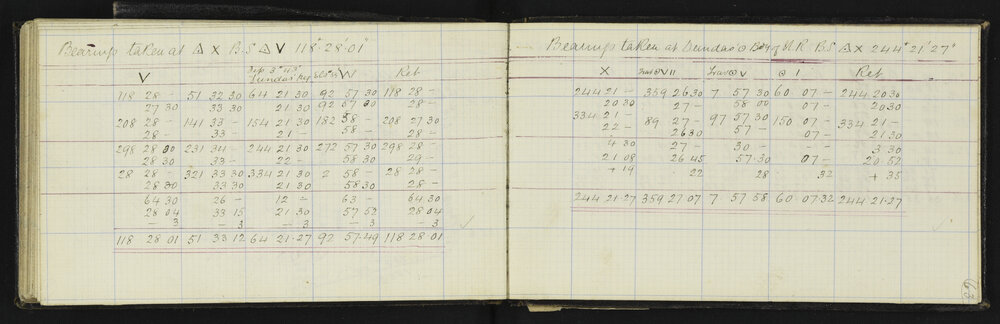 Bearings taken at Δ X B.S Δ V 118° 28' 01"
V Dundas W Ret
118 28 – 51 32 30 64 21 30 92 57 30 118 28 –
27 30 33 30 21 30 92 57 30 28 –
208 28 – 141 33 – 154 21 30 182 58 – 208 27 30
28 – 33 – 21 – 58 – 28 –
298 28 30 231 34 – 244 21 30 272 57 30 298 28 –
28 30 33 – 22 – 58 30 29 –
28 28 – 321 33 30 334 21 30 2 58 – 28 28 –
28 30 33 30 21 30 58 30 28 –
64 30 26 – 12 – 63 – 64 30
28 04 33 15 21 30 57 52 28 04
3 – 3 – 3 – 3 – 3
118 28 01 51 33 12 64 21·27 92 57·49 118 28 01
Bearings taken at Dundas B.S Δ X 244° 21' 27"
X Trav ⊙ VII Trav ⊙ V ⊙ I Ret
244 21 – 359 26 30 7 57 30 60 07 – 244 20 30
20 30 27 – 58 00 07 – 20 30
334 21 – 89 27 – 97 57 30 150 07 – 334 21 –
22 – 26 30 57 – 07 – 21 30
4 30 27 – 30 – – – 3 30
21 08 26 45 57·30 07 – 20 52
+ 19 22 28 32 + 35
244 21·27 359 27 07 7 57 58 60 07·32 244 21·27